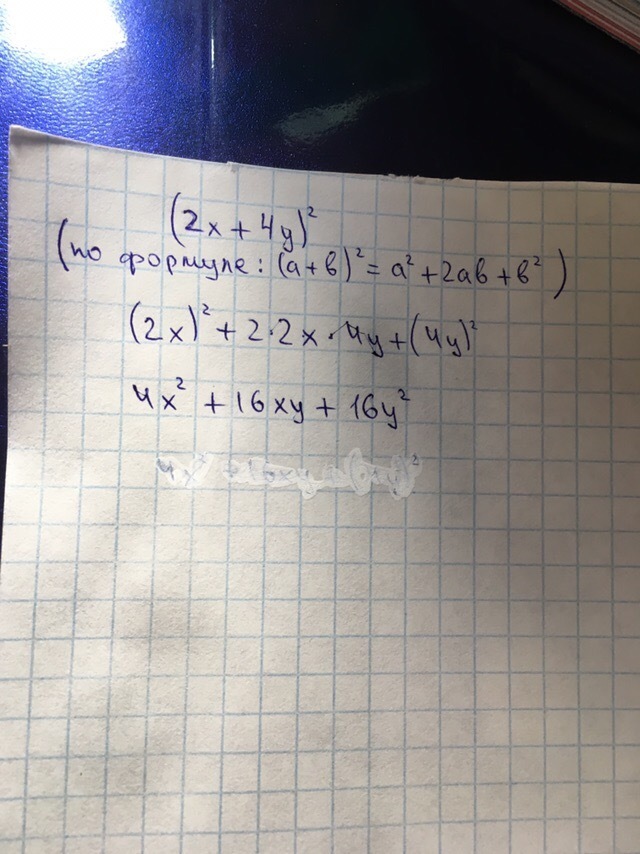 (2x + 4y)²
(по формуле: (а+в)² = а² + 2ав + в²)
(2x)² + 2·2x·4y + (4y)²
4x² + 16xy + 16y²